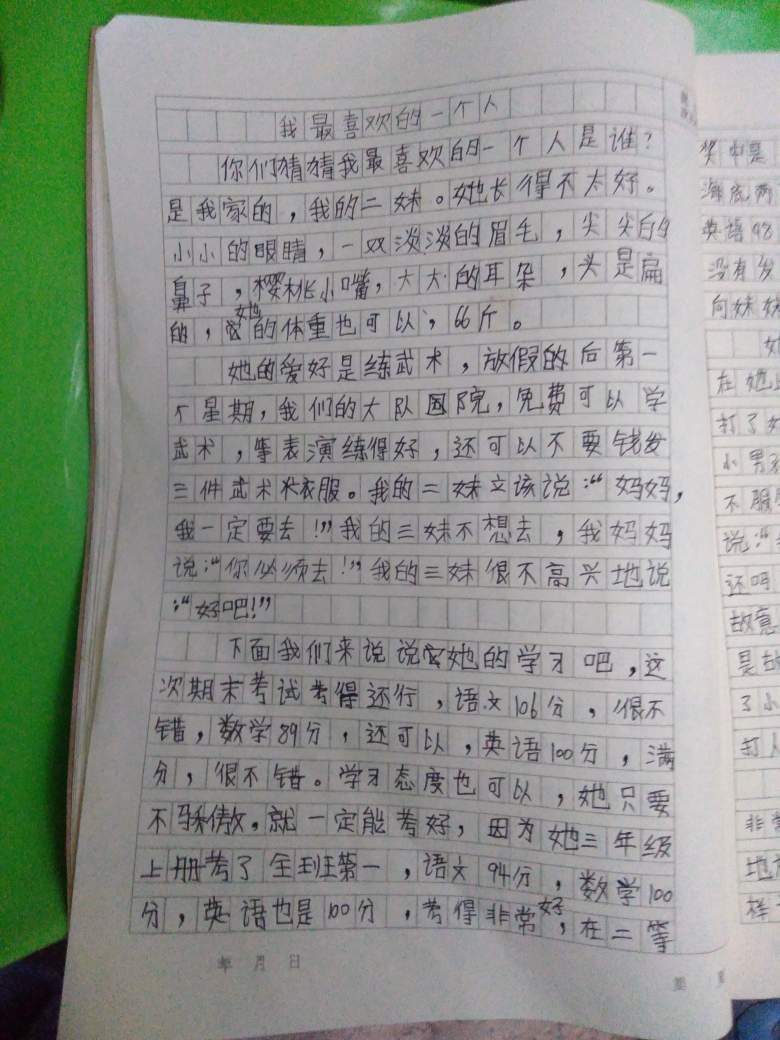 我最喜欢的一个人
你们猜猜我最喜欢的一个人是谁？
是我家的，我的二妹。她长得不太好。
小小的眼睛，一双淡淡的眉毛，尖尖的
鼻子，樱桃小嘴，大大的耳朵，头是扁
的，她的体重也可以，66斤。
她的爱好是练武术，放假的后第一
个星期，我们的大队国院，免费可以学
武术，等表演练得好，还可以不要钱发
三件武术衣服。我的二妹立该说：“妈妈，
我一定要去！”我的三妹不想去，我妈妈
说：“你必须去！”我的三妹很不高兴地说
：“好吧！”
下面我们来说说她的学习吧，这
次期末考试考得还行，语文106分，很不
错，数学89分，还可以，英语100分，满
分，很不错。学习态度也可以，她只要
不骄傲。就一定能考好，因为她三年级
上册考了全班第一，语文94分，数学100
分，英语也是100分，考得非常好，在二等
年 月 日
奖中是
海底两
英语98
没有发
向妹妹
在她
打了
小男
不服
说：“
还吗
故意
是故
了小
打
非常
地
样